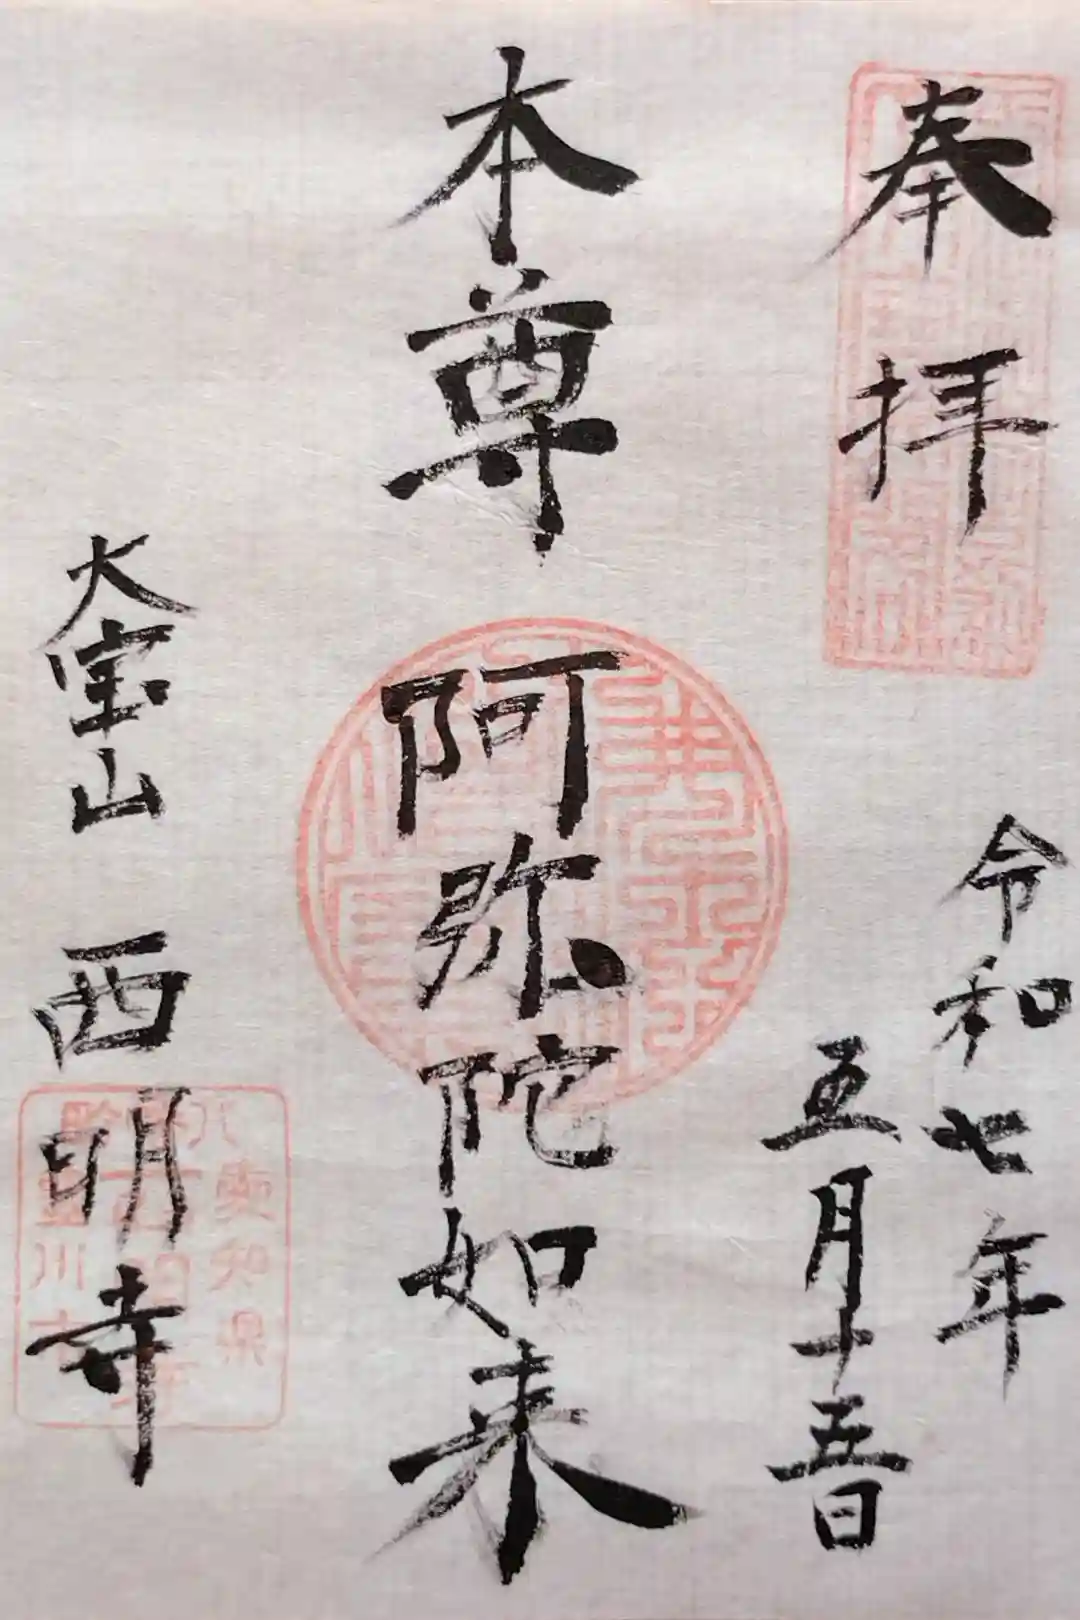 奉拝
令和七年
五月十五日
本尊
阿弥陀如来
大宝山 西明寺
愛知県
川